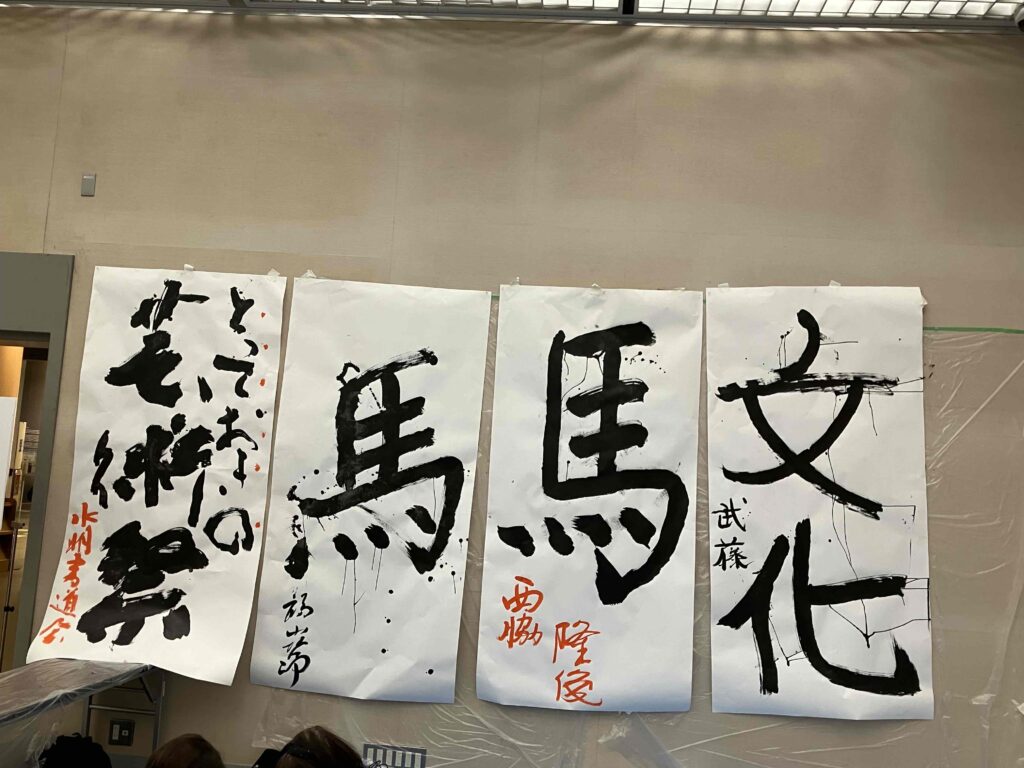 文化
武藤
馬
西脇
隆俊
馬
とっておきの
芸術祭
水明書道会